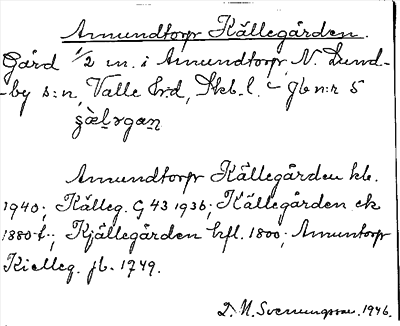 Amundtorp Källegården.
Gård 1/2 m. i Amundtorp, N. Lund-
-by s:n, Valle h:d, Skb. l. – gb n:r 5
Amundtorp Källegården kb.
1940; Källeg. G 43 1936; Källegården ek
1880-t.; Kjällegården hfl. 1800; Amuntorp
Kielleg. jb. 1749.
D. M. Svenungsson. 1946.